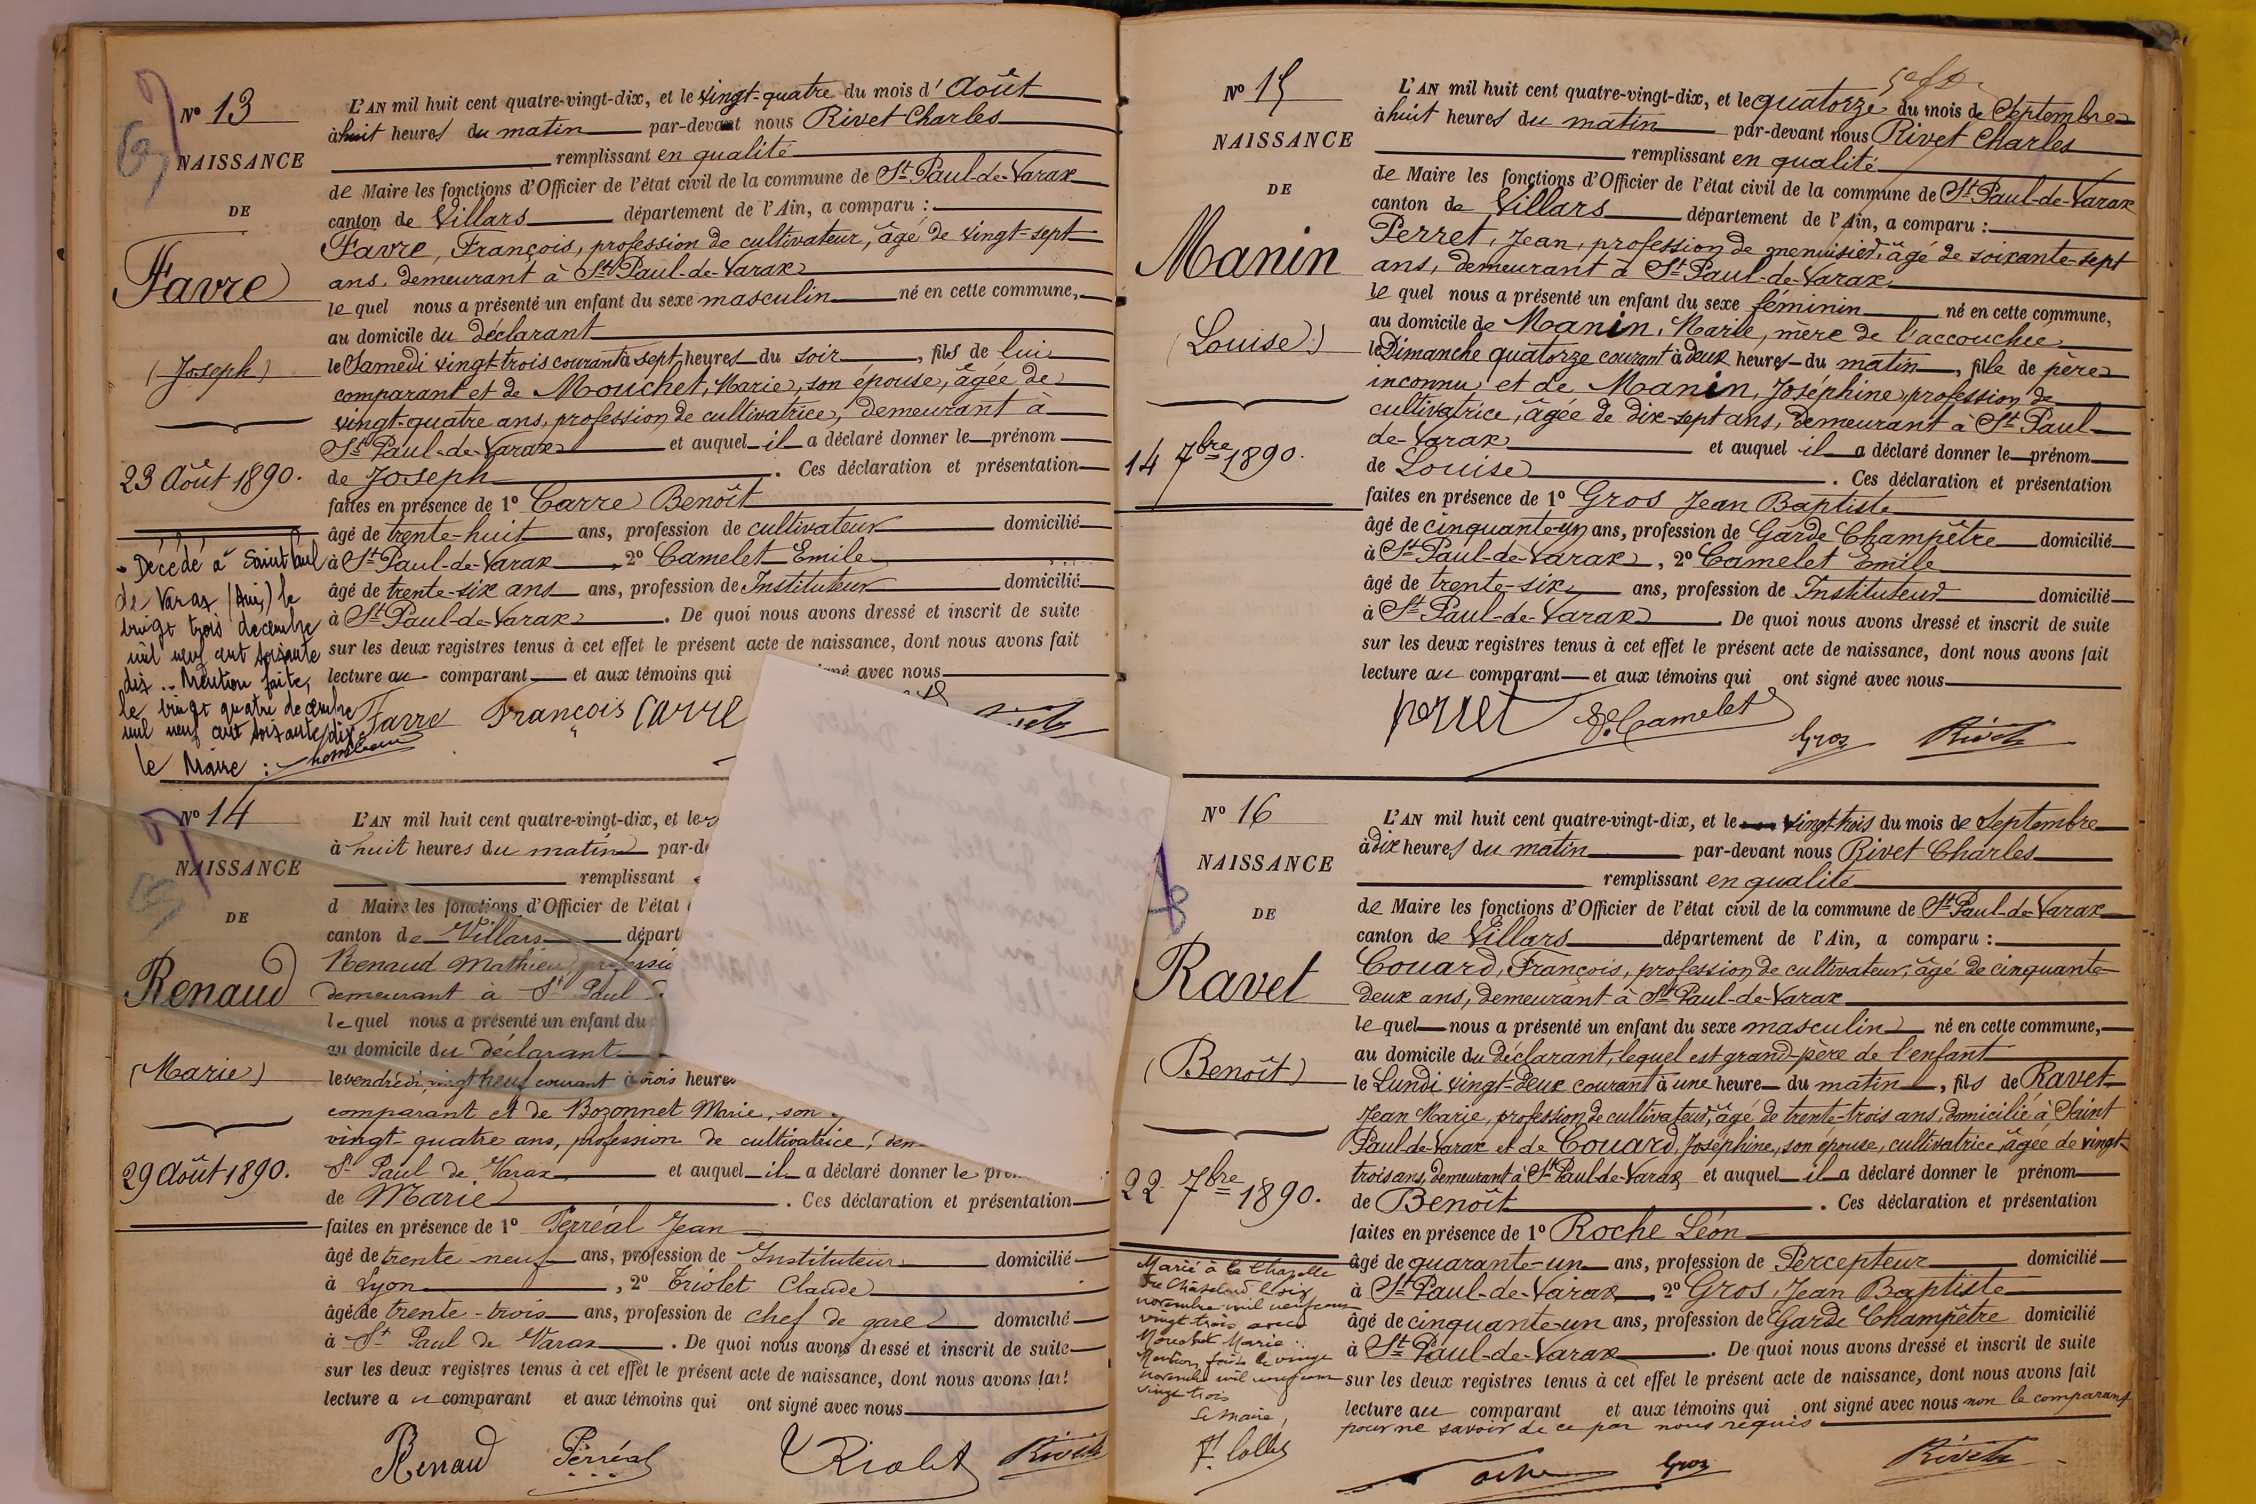 Nº 13
NAISSANCE
DE
Favre
(Joseph)
23 Août 1890.
Décédé à Saint Paul
de Varax (Ain) le
vingt trois décembre
mil neuf cent soixante
dix .. Mention faite,
le vingt quatre décembre
mil neuf cent soixante dix
le Maire :
L'AN mil huit cent quatre-vingt-dix, et le vingt-quatre du mois d'Août
à huit heures du matin par-devant nous Rivet Charles
remplissant en qualité
de Maire les fonctions d'Officier de l'état civil de la commune de St Paul-de-Varax
canton de Villars département de l'Ain, a comparu :
Favre, François, profession de cultivateur, âgé de vingt-sept
ans, demeurant à St Paul-de-Varax
le quel nous a présenté un enfant du sexe masculin né en cette commune,
au domicile du déclarant
le Samedi vingt-trois courant à sept heures du soir, fils de lui
comparant et de Mouchet, Marie, son épouse, âgée de
vingt-quatre ans, profession de cultivatrice, demeurant à
St Paul-de-Varax et auquel il a déclaré donner le prénom
de Joseph. Ces déclaration et présentation
faites en présence de 1º Carre Benoît
âgé de trente-huit ans, profession de cultivateur domicilié
à St Paul-de-Varax, 2º Camelet Emile
âgé de trente-six ans ans, profession de Instituteur domicilié
à St Paul-de-Varax. De quoi nous avons dressé et inscrit de suite
sur les deux registres tenus à cet effet le présent acte de naissance, dont nous avons fait
lecture au comparant et aux témoins qui signé avec nous
Favre François Carre
Rivet
Nº 14
NAISSANCE
DE
Renaud
(Marie)
29 Août 1890.
L'AN mil huit cent quatre-vingt-dix, et le
à huit heures du matin par-d
remplissant
d Maire les fonctions d'Officier de l'état
canton de Villars départ
Renaud Mathieu, professi
demeurant à St Paul
le quel nous a présenté un enfant du
au domicile du déclarant
le vendredi vingt neuf courant à trois heures
comparant et de Bozonnet Marie, son
vingt-quatre ans, profession de cultivatrice, dem
St Paul de Varax et auquel il a déclaré donner le pr
de Marie. Ces déclaration et présentation
faites en présence de 1º Perréal Jean
âgé de trente neuf ans, profession de Instituteur domicilié
à Lyon, 2º Triolet Claude
âgé de trente-trois ans, profession de chef de gare domicilié
à St Paul de Varax. De quoi nous avons dressé et inscrit de suite
sur les deux registres tenus à cet effet le présent acte de naissance, dont nous avons fait
lecture au comparant et aux témoins qui ont signé avec nous
Renaud Perréal Triolet Rivet
Nº 15
NAISSANCE
DE
Manin
(Louise)
14 7bre 1890.
L'AN mil huit cent quatre-vingt-dix, et le quatorze du mois de Septembre
à huit heures du matin par-devant nous Rivet Charles
remplissant en qualité
de Maire les fonctions d'Officier de l'état civil de la commune de St Paul-de-Varax
canton de Villars département de l'Ain, a comparu :
Perret, Jean, profession de menuisier, âgé de soixante-sept
ans, demeurant à St Paul-de-Varax,
le quel nous a présenté un enfant du sexe féminin né en cette commune,
au domicile de Manin, Marie, mère de l'accouchée
le Dimanche quatorze courant à deux heures du matin, fille de père
inconnu et de Manin, Joséphine, profession de
cultivatrice, âgée de dix-sept ans, demeurant à St Paul-
de-Varax et auquel il a déclaré donner le prénom
de Louise. Ces déclaration et présentation
faites en présence de 1º Gros Jean Baptiste
âgé de cinquante-un ans, profession de Garde Champêtre domicilié
à St Paul-de-Varax, 2º Camelet Emile
âgé de trente-six ans, profession de Instituteur domicilié
à St Paul-de-Varax. De quoi nous avons dressé et inscrit de suite
sur les deux registres tenus à cet effet le présent acte de naissance, dont nous avons fait
lecture au comparant et aux témoins qui ont signé avec nous
Perret E. Camelet Gros Rivet
Nº 16
NAISSANCE
DE
Ravet
(Benoît)
22 7bre 1890.
Marié à la Chapelle
du Châtelard le six
novembre mil neuf cent
vingt trois avec
Mouchet Marie
Mention faite le vingt
novembre mil neuf cent
vingt trois
Le Maire,
L'AN mil huit cent quatre-vingt-dix, et le vingt-trois du mois de Septembre
à dix heures du matin par-devant nous Rivet Charles
remplissant en qualité
de Maire les fonctions d'Officier de l'état civil de la commune de St Paul-de-Varax
canton de Villars département de l'Ain, a comparu :
Couard, François, profession de cultivateur, âgé de cinquante-
deux ans, demeurant à St Paul-de-Varax
le quel nous a présenté un enfant du sexe masculin né en cette commune,
au domicile du déclarant, lequel est grand-père de l'enfant
le Lundi vingt-deux courant à une heure du matin, fils de Ravet
Jean Marie, profession de cultivateur, âgé de trente-trois ans, domicilié à Saint
Paul-de-Varax et de Couard, Joséphine, son épouse, cultivatrice, âgée de vingt-
trois ans, demeurant à St Paul-de-Varax et auquel il a déclaré donner le prénom
de Benoît. Ces déclaration et présentation
faites en présence de 1º Roche Léon
âgé de quarante-un ans, profession de Percepteur domicilié
à St Paul-de-Varax, 2º Gros, Jean Baptiste
âgé de cinquante-un ans, profession de Garde Champêtre domicilié
à St Paul-de-Varax. De quoi nous avons dressé et inscrit de suite
sur les deux registres tenus à cet effet le présent acte de naissance, dont nous avons fait
lecture au comparant et aux témoins qui ont signé avec nous non le comparant
pour ne savoir de ce par nous requis
Gros Rivet